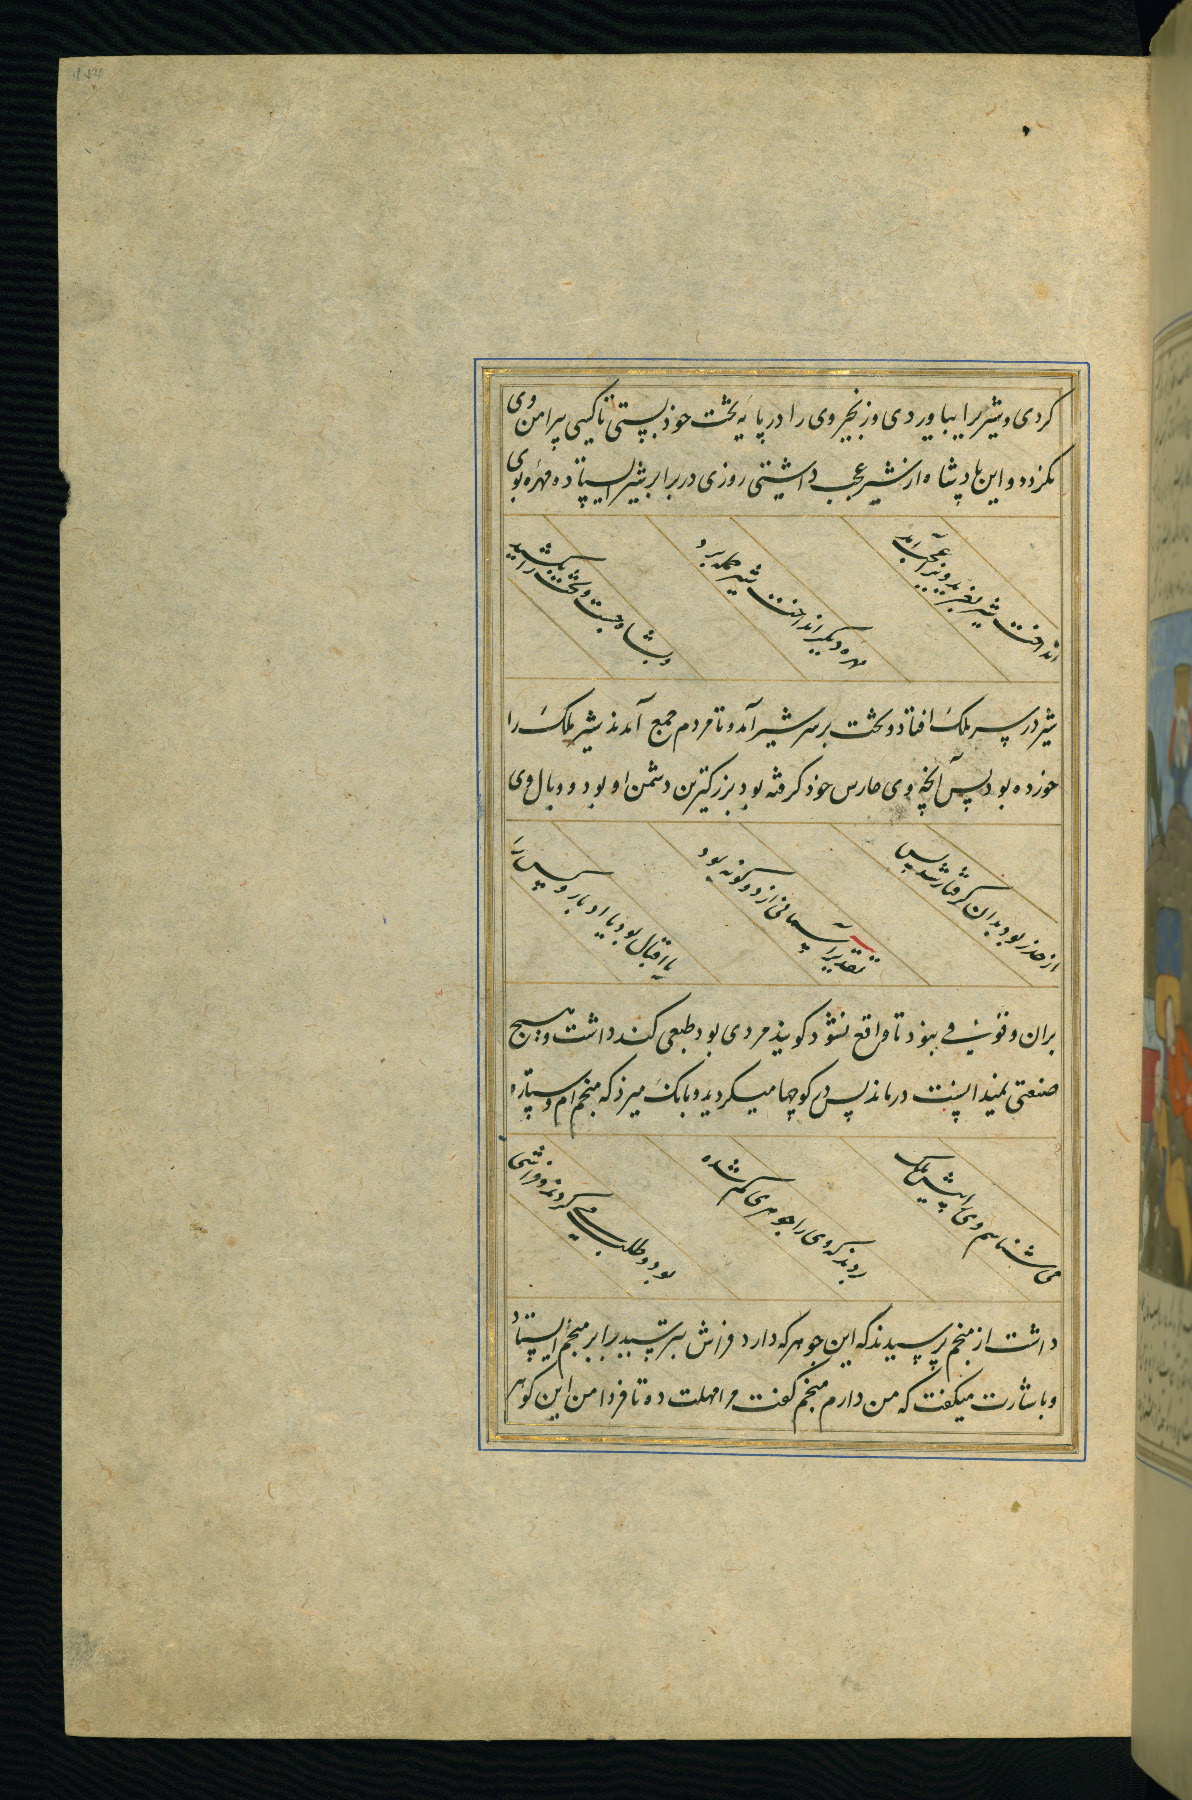 کردی و شیر را بیاوردی و زنجیر وی را در پایه تخت خوذ بستی تا کسی پیرامن وی
نکردد و این پادشاه ازین شیر عجب داشتی روزی در برابر شیر ایستاده مهره بوی
انداخت شیر بغرید ویرا عجب آمد
مهره دیکر انداخت شیر حمله برد
وبشاه جست وتخت را بکشید
شیر در پس ملک افتاذ و تخت بر سر شیر آمد و تا مردم جمع آمدند شیر ملک را
خورده بود پس آنچه وی حارس خوذ کرفته بود بزرکترین دشمن او بود و وبال وی
از حذر بود بدان کرفتار شد پس
تقدیر آسمانی از دو کونه بود
یا اقبال بود یا ادبار و کس را
بران وقوف نبوذ تا واقع نشوذ کویند مردی بود طبعی کند داشت و هیچ
صنعتی نمیدانست درماند پس در کوچها میکردید و بانک میزد که منجم ام و ستاره
می شناسم وی را پیش ملک
بردند که وی را جوهری کم شده
بود و طلب می کردند و فراشی
داشت از منجم پرسیدند که این جوهر که دارد فراش بترسید برابر منجم ایستاد
و باشارت میکفت که من دارم منجم کفت مرا مهلت ده تا فردا من این کوهر